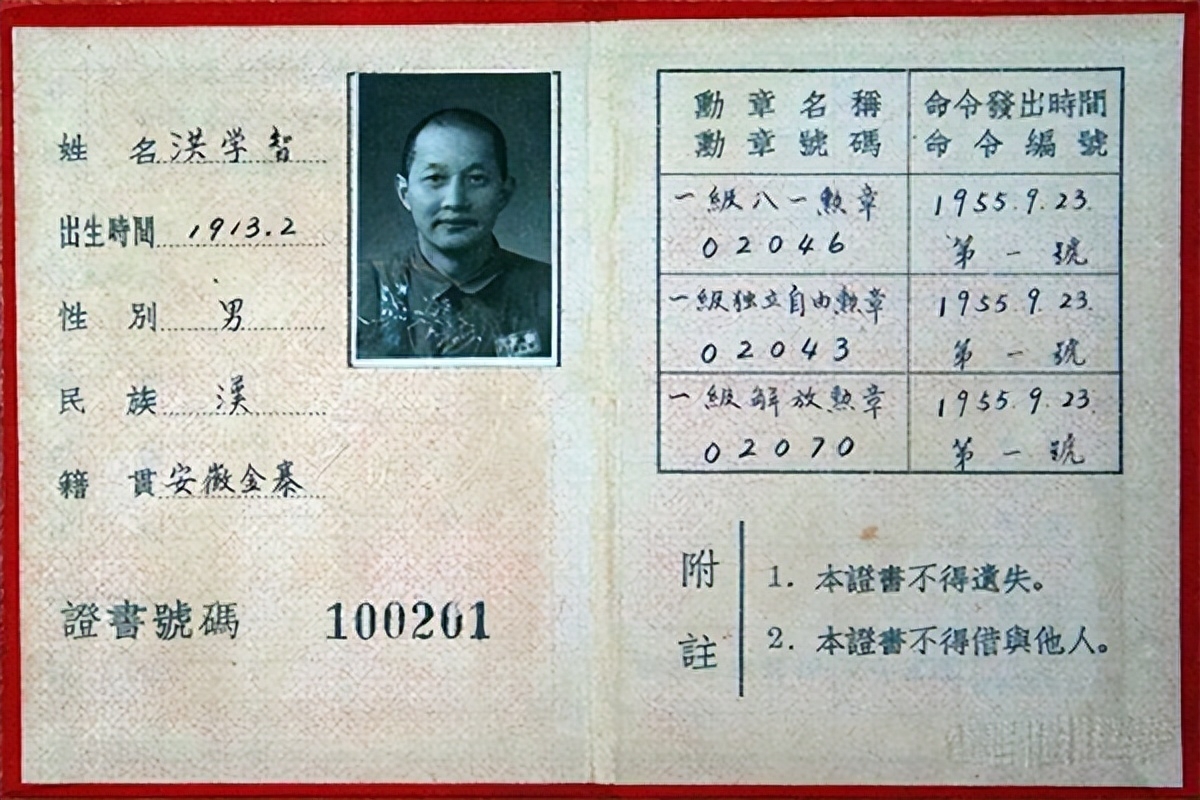 姓 名 洪学智
出生時間 1913.2
性 別 男
民 族 漢
籍 貫 安徽金寨
證書號碼 100201
勳章名稱 命令發出時間
勳章號碼 命令編號
一級八一勲章 1955.9.23.
02046 第一號
一級独立自由勲章 1955.9.23.
02043 第一號
一級解放勲章 1955.9.23.
02070 第一號
附註
1. 本證書不得遺失。
2. 本證書不得借與他人。